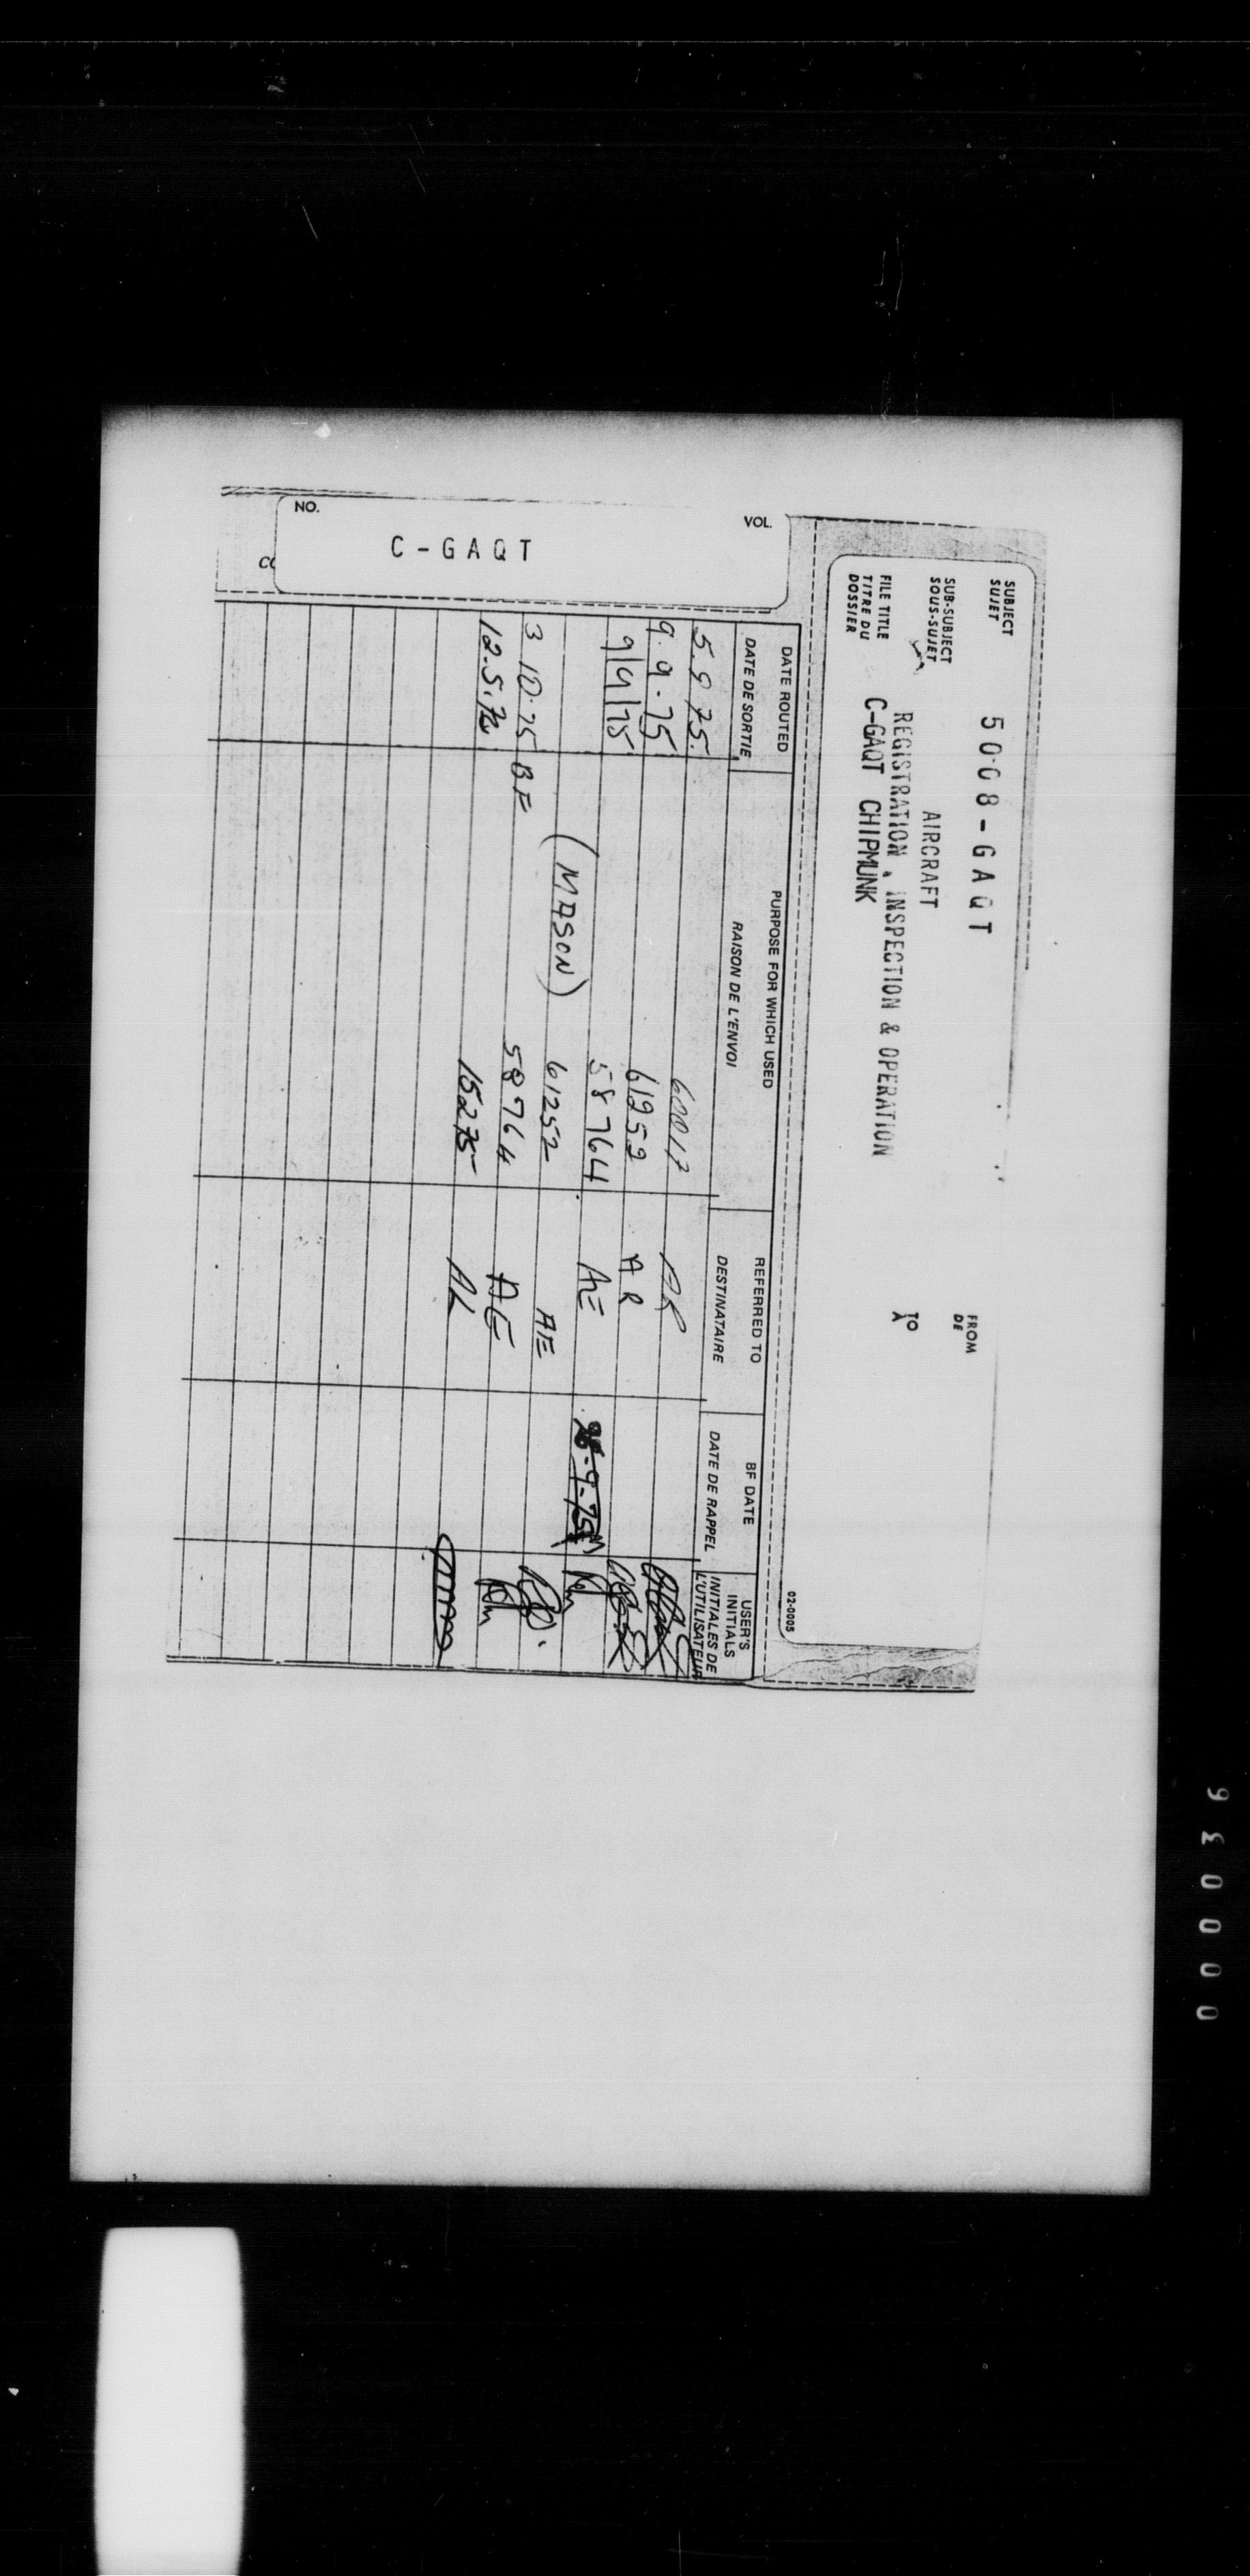 NO.
VOL.
C-GAQT
SUBJECT
SUJET
5008-GAQT
FROM
DE
SUB-SUBJECT
SOUS-SUJET
AIRCRAFT
FILE TITLE
TITRE DU
DOSSIER
REGISTRATION, INSPECTION & OPERATION
C-GAQT CHIPMUNK
TO
À
02-0005
DATE ROUTED
DATE DE SORTIE
PURPOSE FOR WHICH USED
RAISON DE L'ENVOI
REFERRED TO
DESTINATAIRE
BF DATE
DATE DE RAPPEL
USER'S
INITIALS
INITIALES DE
L'UTILISATEUR
5.9 75. 60017 AR
9.9.75 61252 AR
9/9/75 58764 AE
(MASON) 61252 AE
3 10.75 BF 58764 AE
12.5.76 15275
000036